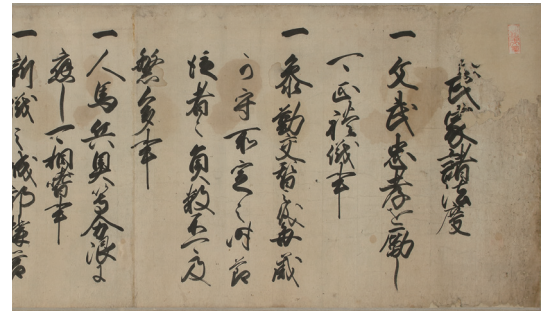 武家諸法度
一文武忠孝を励し
可正礼儀事
一参勤交替之儀毎歳
可守所定之時節
従者之員数不可及
繁多事
一人馬兵具等分限に
応し可相嗜事
一新規之城郭構営